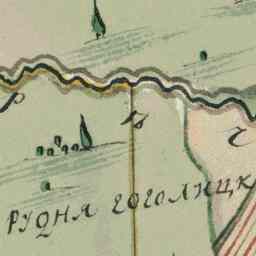 Р ѣ ч
РУДНЯ ГОГОЛИЦК